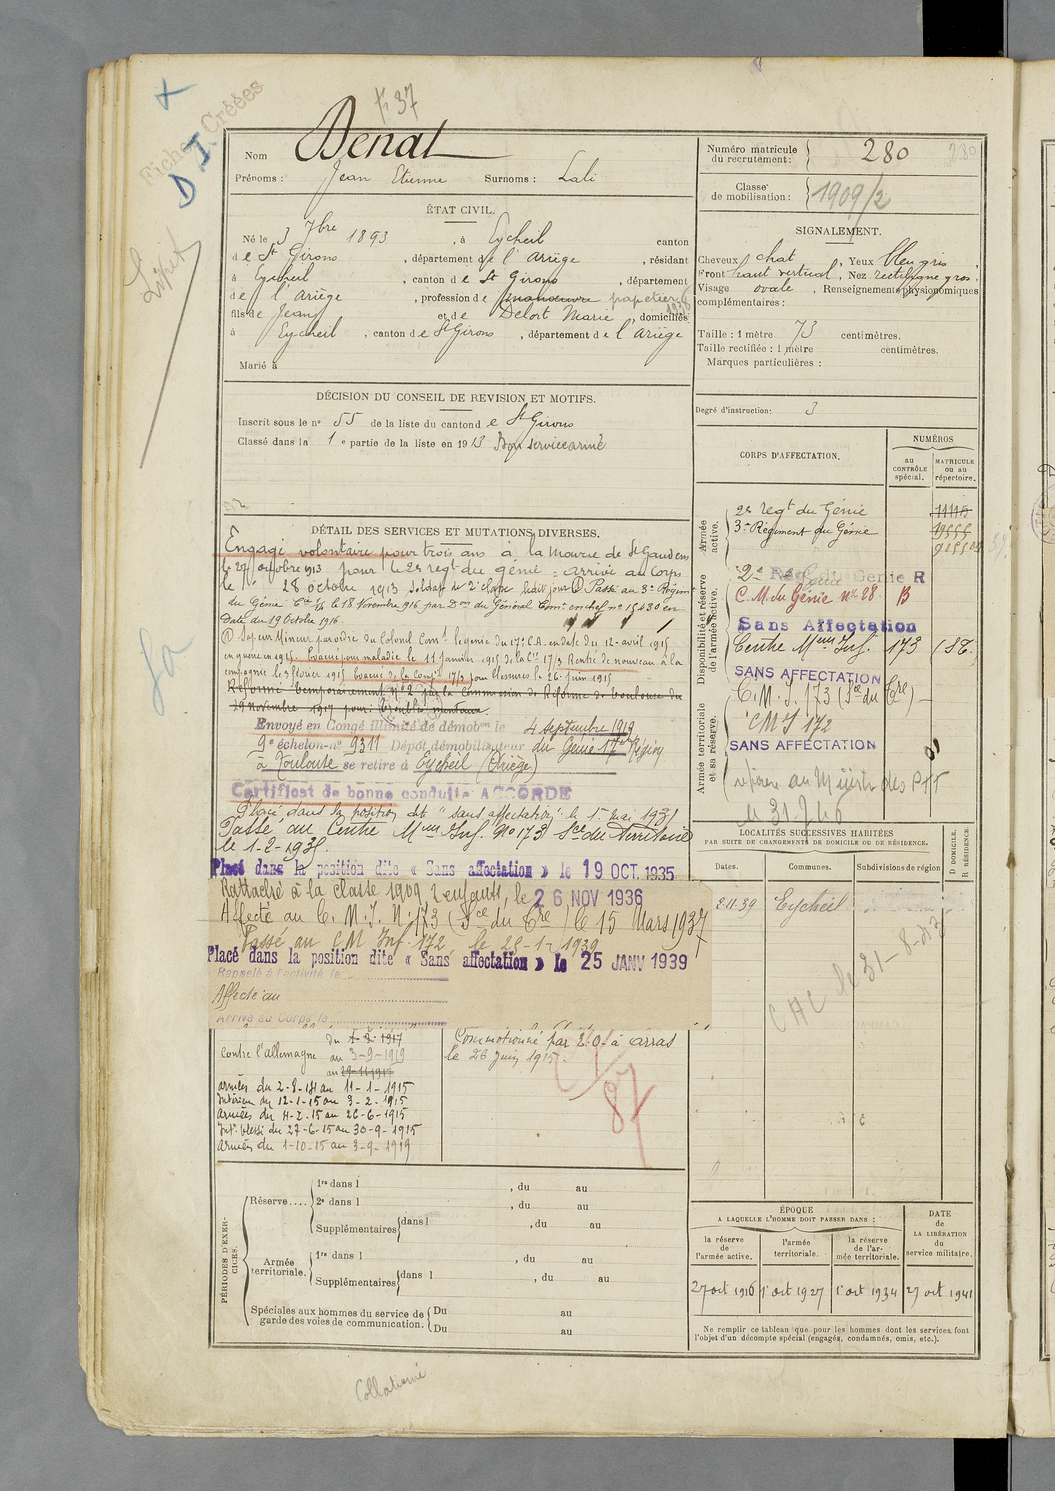 Fiches Créées
D.I.
37
Nom Denat
Prénoms : Jean Etienne Surnoms : Lali
ÉTAT CIVIL.
Né le 3 7bre 1893, à Eycheil canton
de St Girons, département de l'Ariège, résidant
à Eycheil, canton de St Girons, département
de l'Ariège, profession de manœuvre papetier
fils de Jean et de Delort Marie, domiciliés
à Eycheil, canton de St Girons, département de l'Ariège
Marié à
DÉCISION DU CONSEIL DE REVISION ET MOTIFS.
Inscrit sous le no 55 de la liste du canton de St Girons
Classé dans la 1e partie de la liste en 1913 Bon service armé
DÉTAIL DES SERVICES ET MUTATIONS DIVERSES.
Engagé volontaire pour trois ans à la Mairie de St Gaudens
le 27 octobre 1913 pour le 2e régt du génie = arrivé au Corps
le 28 octobre 1913 soldat de 2e classe ledit jour ① Passé au 3e Régiment
du Génie le 18 Novembre 1916 par Don du Général Comt en chef no 15430 en
date du 19 Octobre 1916.
① Sapeur Mineur par ordre du Colonel Comt le génie du 17e C.A. en date du 12 avril 1915
Evacué pour maladie le 11 Janvier 1915 de la Cie 17/3 Rentré de nouveau à la
compagnie le 3 février 1915 Evacué de la Compie 17/3 pour blessures le 26 Juin 1915
Réformé temporairement No 2 par la Commission de Réforme de Toulouse du
29 novembre 1917 pour
Envoyé en Congé illimité de démobon le 4 septembre 1919
9e échelon no 9311 Dépôt démobilisateur du Génie 17e Région
à Toulouse se retire à Eycheil (Ariège)
Certificat de bonne conduite ACCORDÉ
Placé dans la position dite "sans affectation" le 1er mai 1931
Passé au Centre Mum Inf. No 173 Son du Territoire
le 1-2-193
Placé dans la position dite « Sans affectation » le 19 OCT. 1935
Rattaché à la classe 1909 2 enfants, le 26 NOV 1936
Affecté au C. M. I. No 173 (Son du Tre) le 15 Mars 1937
Passé au CM Inf 172
Placé dans la position dite « Sans affectation » le 25 JANV 1939
Rappelé à l'activité le
Affecté au
Arrivé au Corps le
contre l'allemagne
au 3-9-1919
au 29-11-1917
armées du 2-8-14 au 11-1-1915
intérieur du 12-1-15 au 3-2-1915
armées du 4-2-15 au 26-6-1915
Intr blessé du 27-6-15 au 30-9-1915
armées du 1-10-15 au 3-9-1919
Commotionné par E.O. à Arras
le 26 juin 1915.
87
PÉRIODES D'EXERCICES.
Réserve....
1re dans l , du au
2e dans l , du au
Supplémentaires dans l , du au
Armée territoriale.
1re dans l , du au
Supplémentaires dans l , du au
Spéciales aux hommes du service de garde des voies de communication.
Du au
Du au
Collationné
Numéro matricule du recrutement : 280
Classe de mobilisation : 1909/2
SIGNALEMENT.
Cheveux chat, Yeux bleu gris,
Front haut vertical, Nez rectiligne gros
Visage ovale, Renseignements physionomiques
complémentaires :
Taille : 1 mètre 73 centimètres.
Taille rectifiée : 1 mètre centimètres.
Marques particulières :
Degré d'instruction : 3
CORPS D'AFFECTATION.
NUMÉROS
au CONTRÔLE spécial.
MATRICULE ou au répertoire.
Armée active.
2e régt du Génie
3e Régiment du Génie
Disponibilité et réserve de l'armée active.
2e Régt du Génie R
C.M. du Génie no 28
Sans Affectation
Centre Mum Inf. 173 (St.
SANS AFFECTATION
Armée territoriale et sa réserve.
C.M.I. 173 (Son du Tre)
CMI 172
SANS AFFECTATION
LOCALITÉS SUCCESSIVES HABITÉES
PAR SUITE DE CHANGEMENTS DE DOMICILE OU DE RÉSIDENCE.
Dates. Communes. Subdivisions de région D. DOMICILE. R. RÉSIDENCE.
2.11.39 Eycheil
ÉPOQUE
A LAQUELLE L'HOMME DOIT PASSER DANS :
DATE de LA LIBÉRATION du service militaire.
la réserve de l'armée active. l'armée territoriale. la réserve de l'armée territoriale.
27 oct 1916 1r oct 1927 1r oct 1934 27 oct 1941
Ne remplir ce tableau que pour les hommes dont les services font
l'objet d'un décompte spécial (engagés, condamnés, omis, etc.).